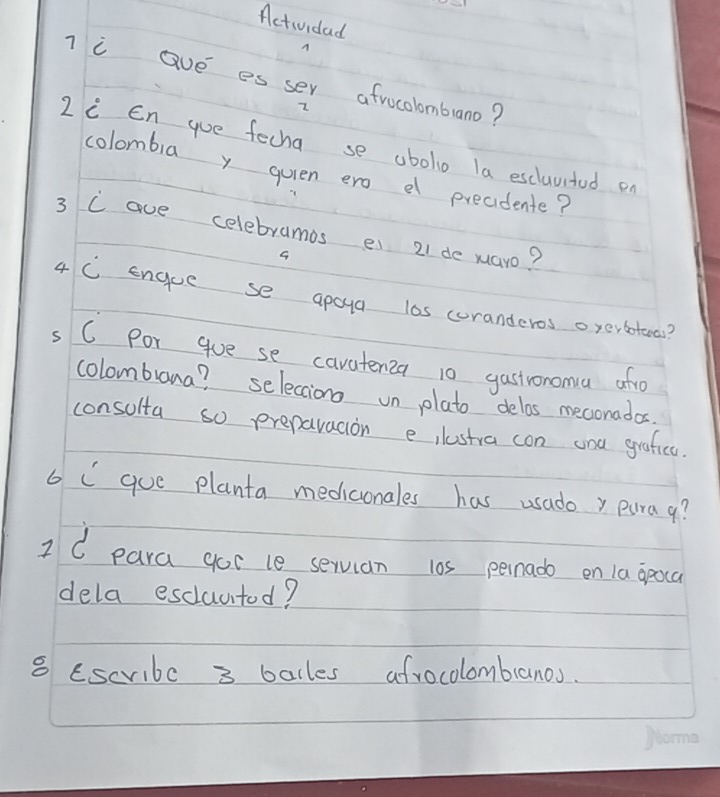 Actividad
1
1 ¿ Qué es ser afrocolombiano?
2
2 ¿ En que fecha se abolio la esclavitud en
colombia y quien era el precidente?
3 ¿ que celebramos el 21 de mayo?
4
4 ¿ enque se apoya los curanderos o yerbateros?
5 ¿ Por que se caratenza la gastronomia afro
colombiana? selecciona un plato delos mecionados.
consulta so preparación e ilustra con una grafica.
6 ¿ que planta medicionales has usado y para q?
7 ¿ para que le servian los peinado en la época
dela esclavitod?
8 Escribe 3 bailes afrocolombianos.
Norma